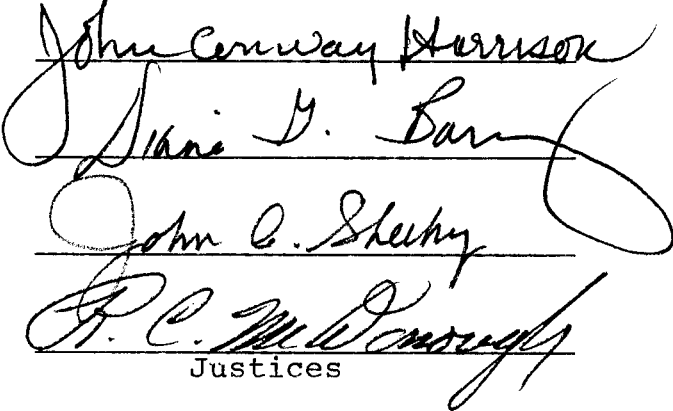 John Conway Harrison
Diane G. Barz
John C. Sheehy
R. C. McDonough
Justices